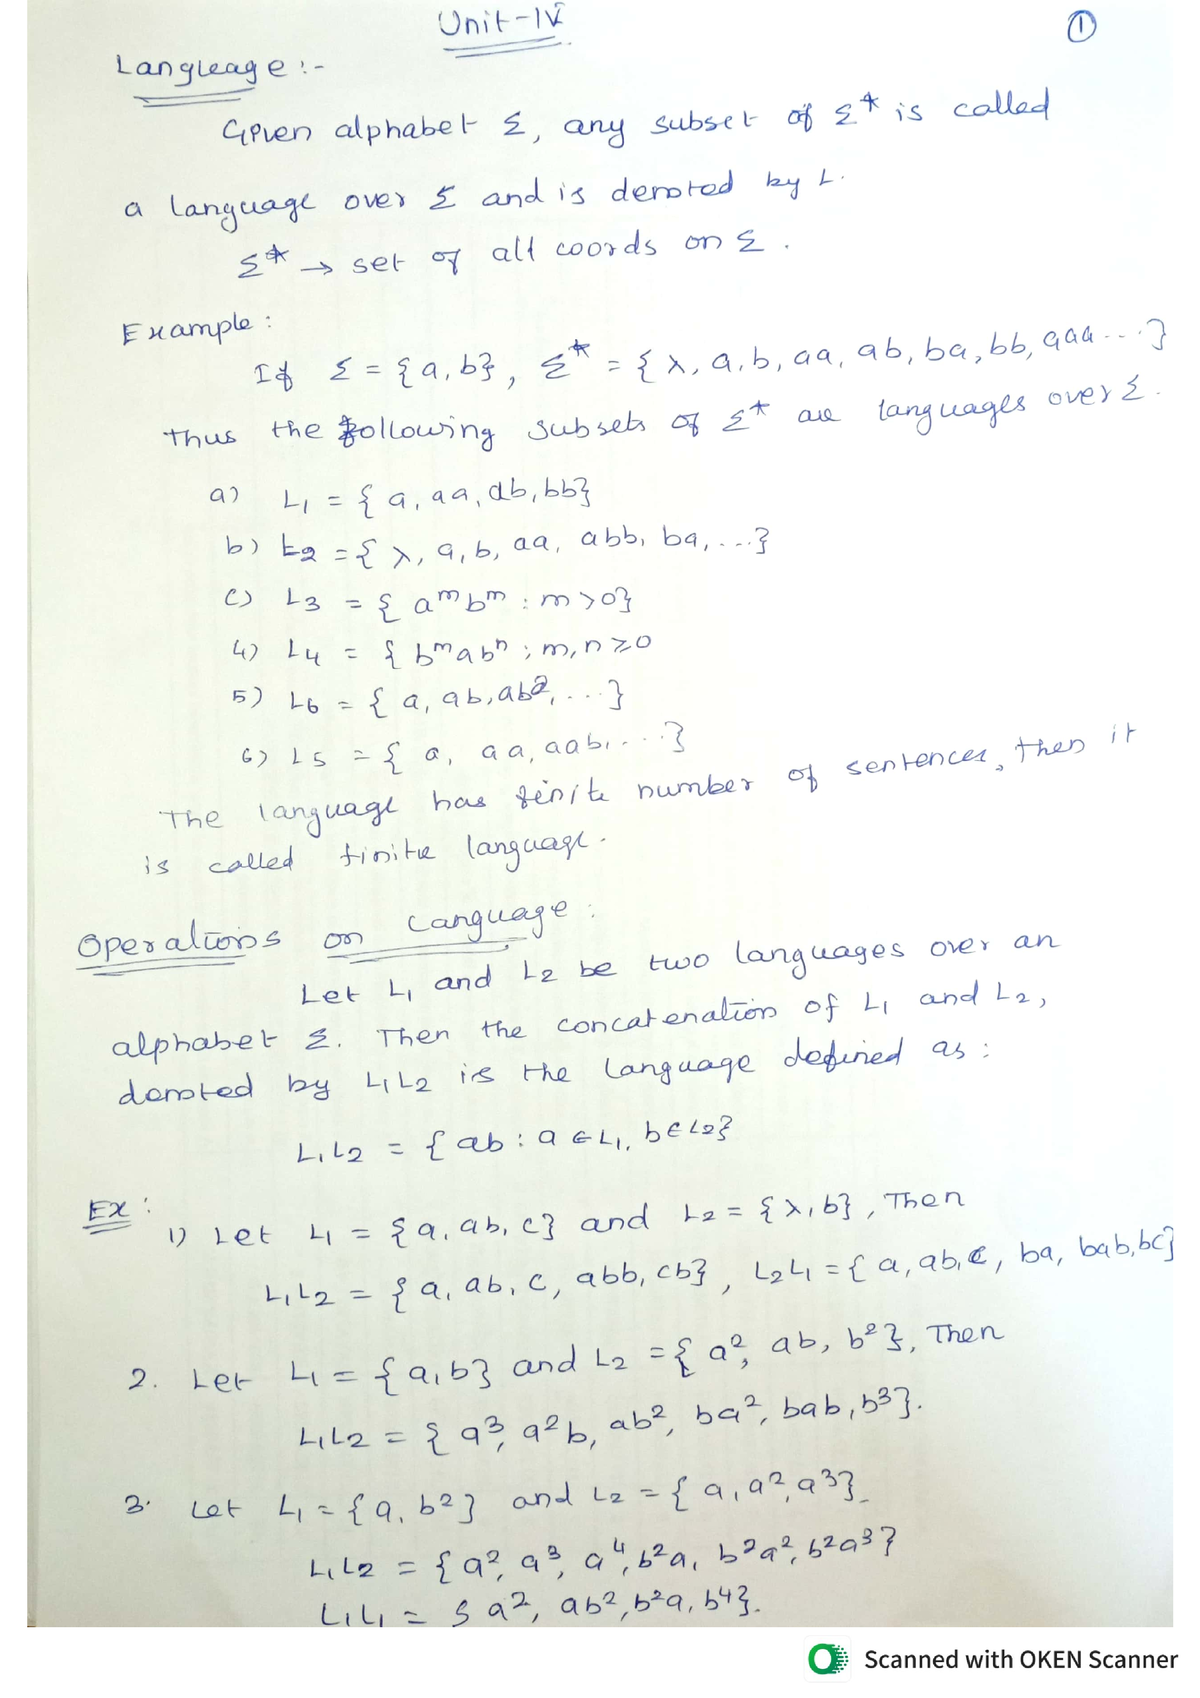 Unit-IV
①
Language :-
Given alphabet Σ, any subset of Σ* is called
a language over Σ and is denoted by L.
Σ* → set of all words on Σ.
Example :
If Σ = {a, b}, Σ* = {λ, a, b, aa, ab, ba, bb, aaa ....}
Thus the following subsets of Σ* are languages over Σ.
a) L₁ = {a, aa, ab, bb}
b) L₂ = {λ, a, b, aa, abb, ba, ....}
c) L₃ = {aᵐbᵐ : m>0}
4) L₄ = {bᵐabⁿ ; m, n ≥0
5) L₆ = {a, ab, ab², ....}
6) L₅ = {a, aa, aab, ....}
The language has finite number of sentences, then it
is called finite language.
Operations on Language :
Let L₁ and L₂ be two languages over an
alphabet Σ. Then the concatenation of L₁ and L₂,
denoted by L₁L₂ is the language defined as :
L₁L₂ = {ab : a ∈ L₁, b ∈ L₂}
Ex :
1) Let L₁ = {a, ab, c} and L₂ = {λ, b}, Then
L₁L₂ = {a, ab, c, abb, cb}, L₂L₁ = {a, ab, c, ba, bab, bc}
2. Let L₁ = {a, b} and L₂ = {a², ab, b²}, Then
L₁L₂ = {a³, a²b, ab², ba², bab, b³}.
3. Let L₁ = {a, b²} and L₂ = {a, a², a³}
L₁L₂ = {a², a³, a⁴, b²a, b²a², b²a³}
L₁L₁ = {a², ab², b²a, b⁴}.
Scanned with OKEN Scanner